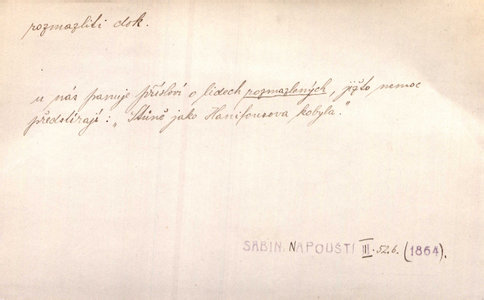 rozmazliti dok.
u nás panuje přísloví o lidech rozmazlených, jižto nemoc
předstírají: „Stůně jako Hanifousova kobyla.“
SABIN. NAPOUŠTI III. 52. b. (1864).